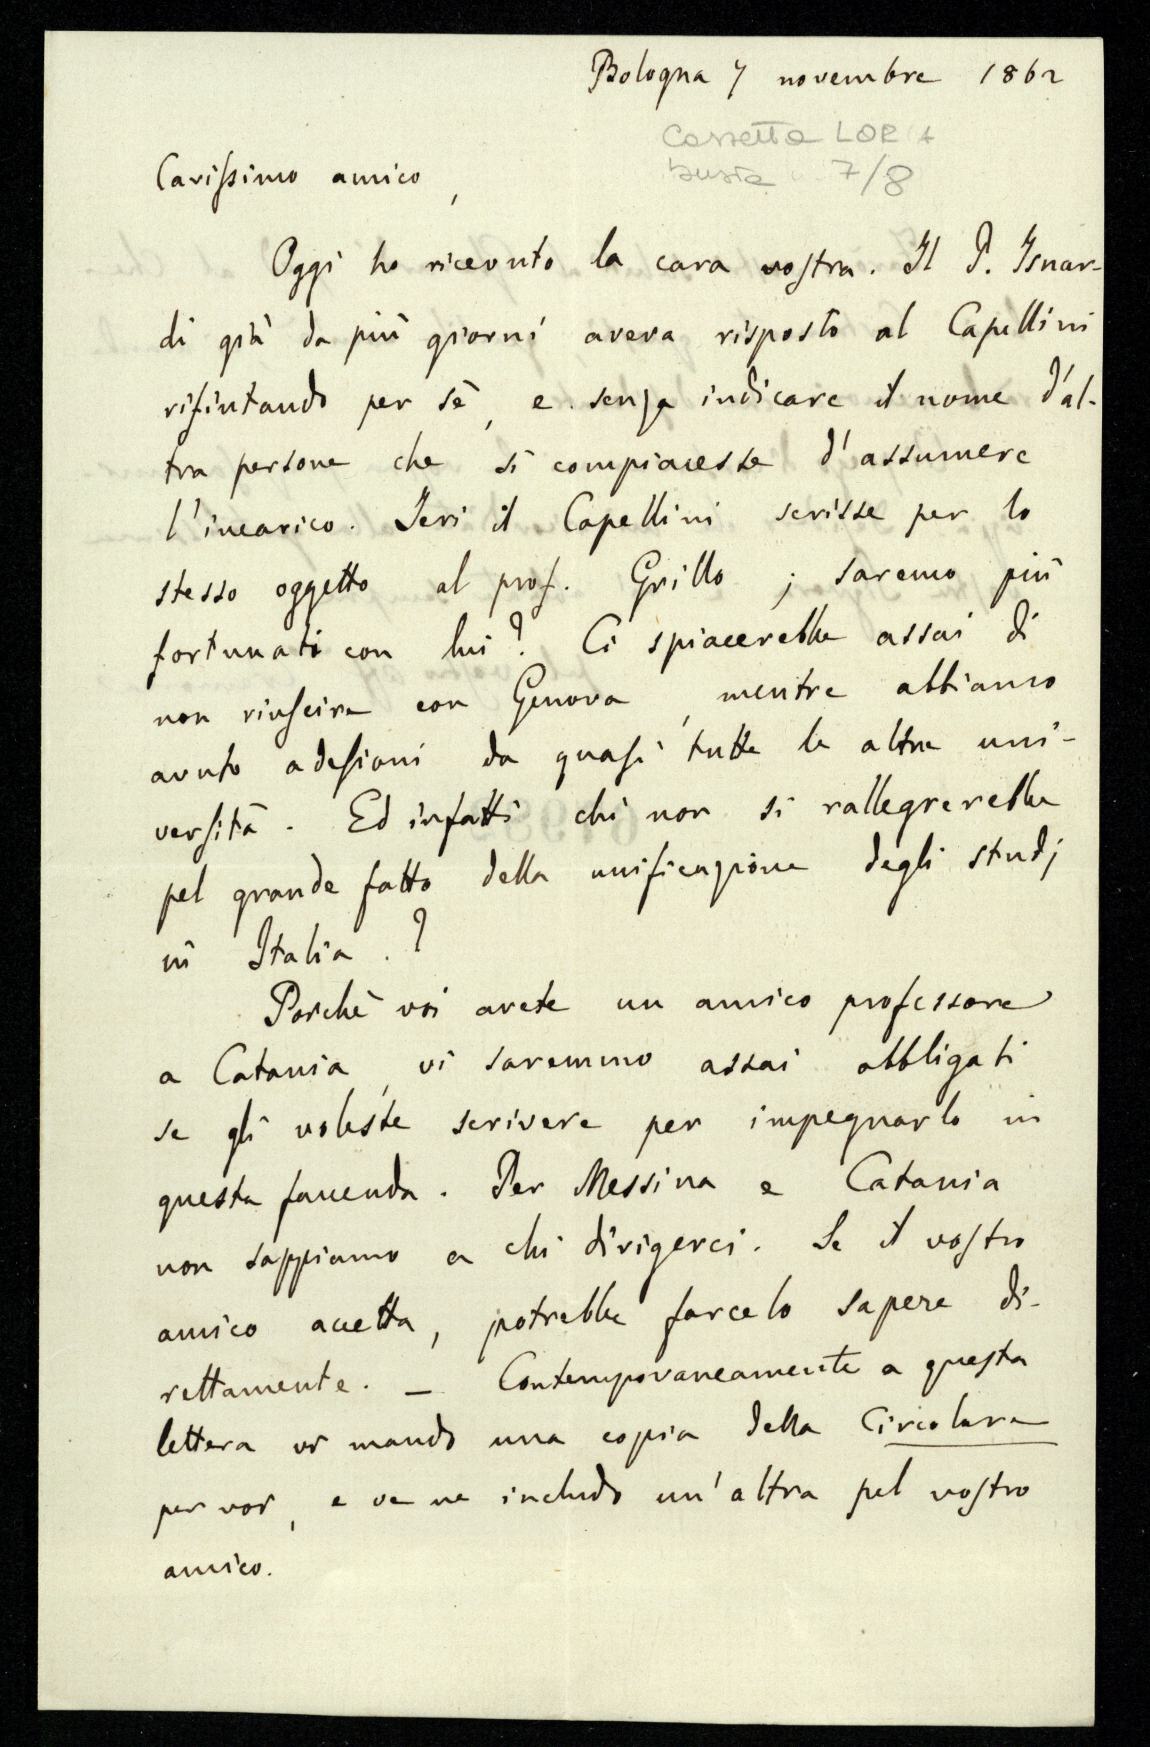 Bologna 7 novembre 1862
Cassetta LORIA
busta 7/8
Carissimo amico,
Oggi ho ricevuto la cara vostra. Il P. Isnar-
di già da più giorni aveva risposto al Capellini
rifiutando per sè, e senza indicare il nome d'al-
tra persona che si compiacesse d'assumere
l'incarico. Ieri il Capellini scrisse per lo
stesso oggetto al prof. Grillo; saremo più
fortunati con lui? Ci spiacerebbe assai di
non riuscire con Genova, mentre abbiamo
avuto adesioni da quasi tutte le altre uni-
versità. Ed infatti chi non si rallegrerebbe
pel grande fatto della unificazione degli studj
in Italia.?
Perchè voi avete un amico professore
a Catania, vi saremmo assai obbligati
se gli voleste scrivere per impegnarlo in
questa faccenda. Per Messina e Catania
non sappiamo a chi dirigerci. Se il vostro
amico accetta, potrebbe farcelo sapere di-
rettamente. — Contemporaneamente a questa
lettera vi mando una copia della Circolare
per voi, e ve ne includo un'altra pel vostro
amico.